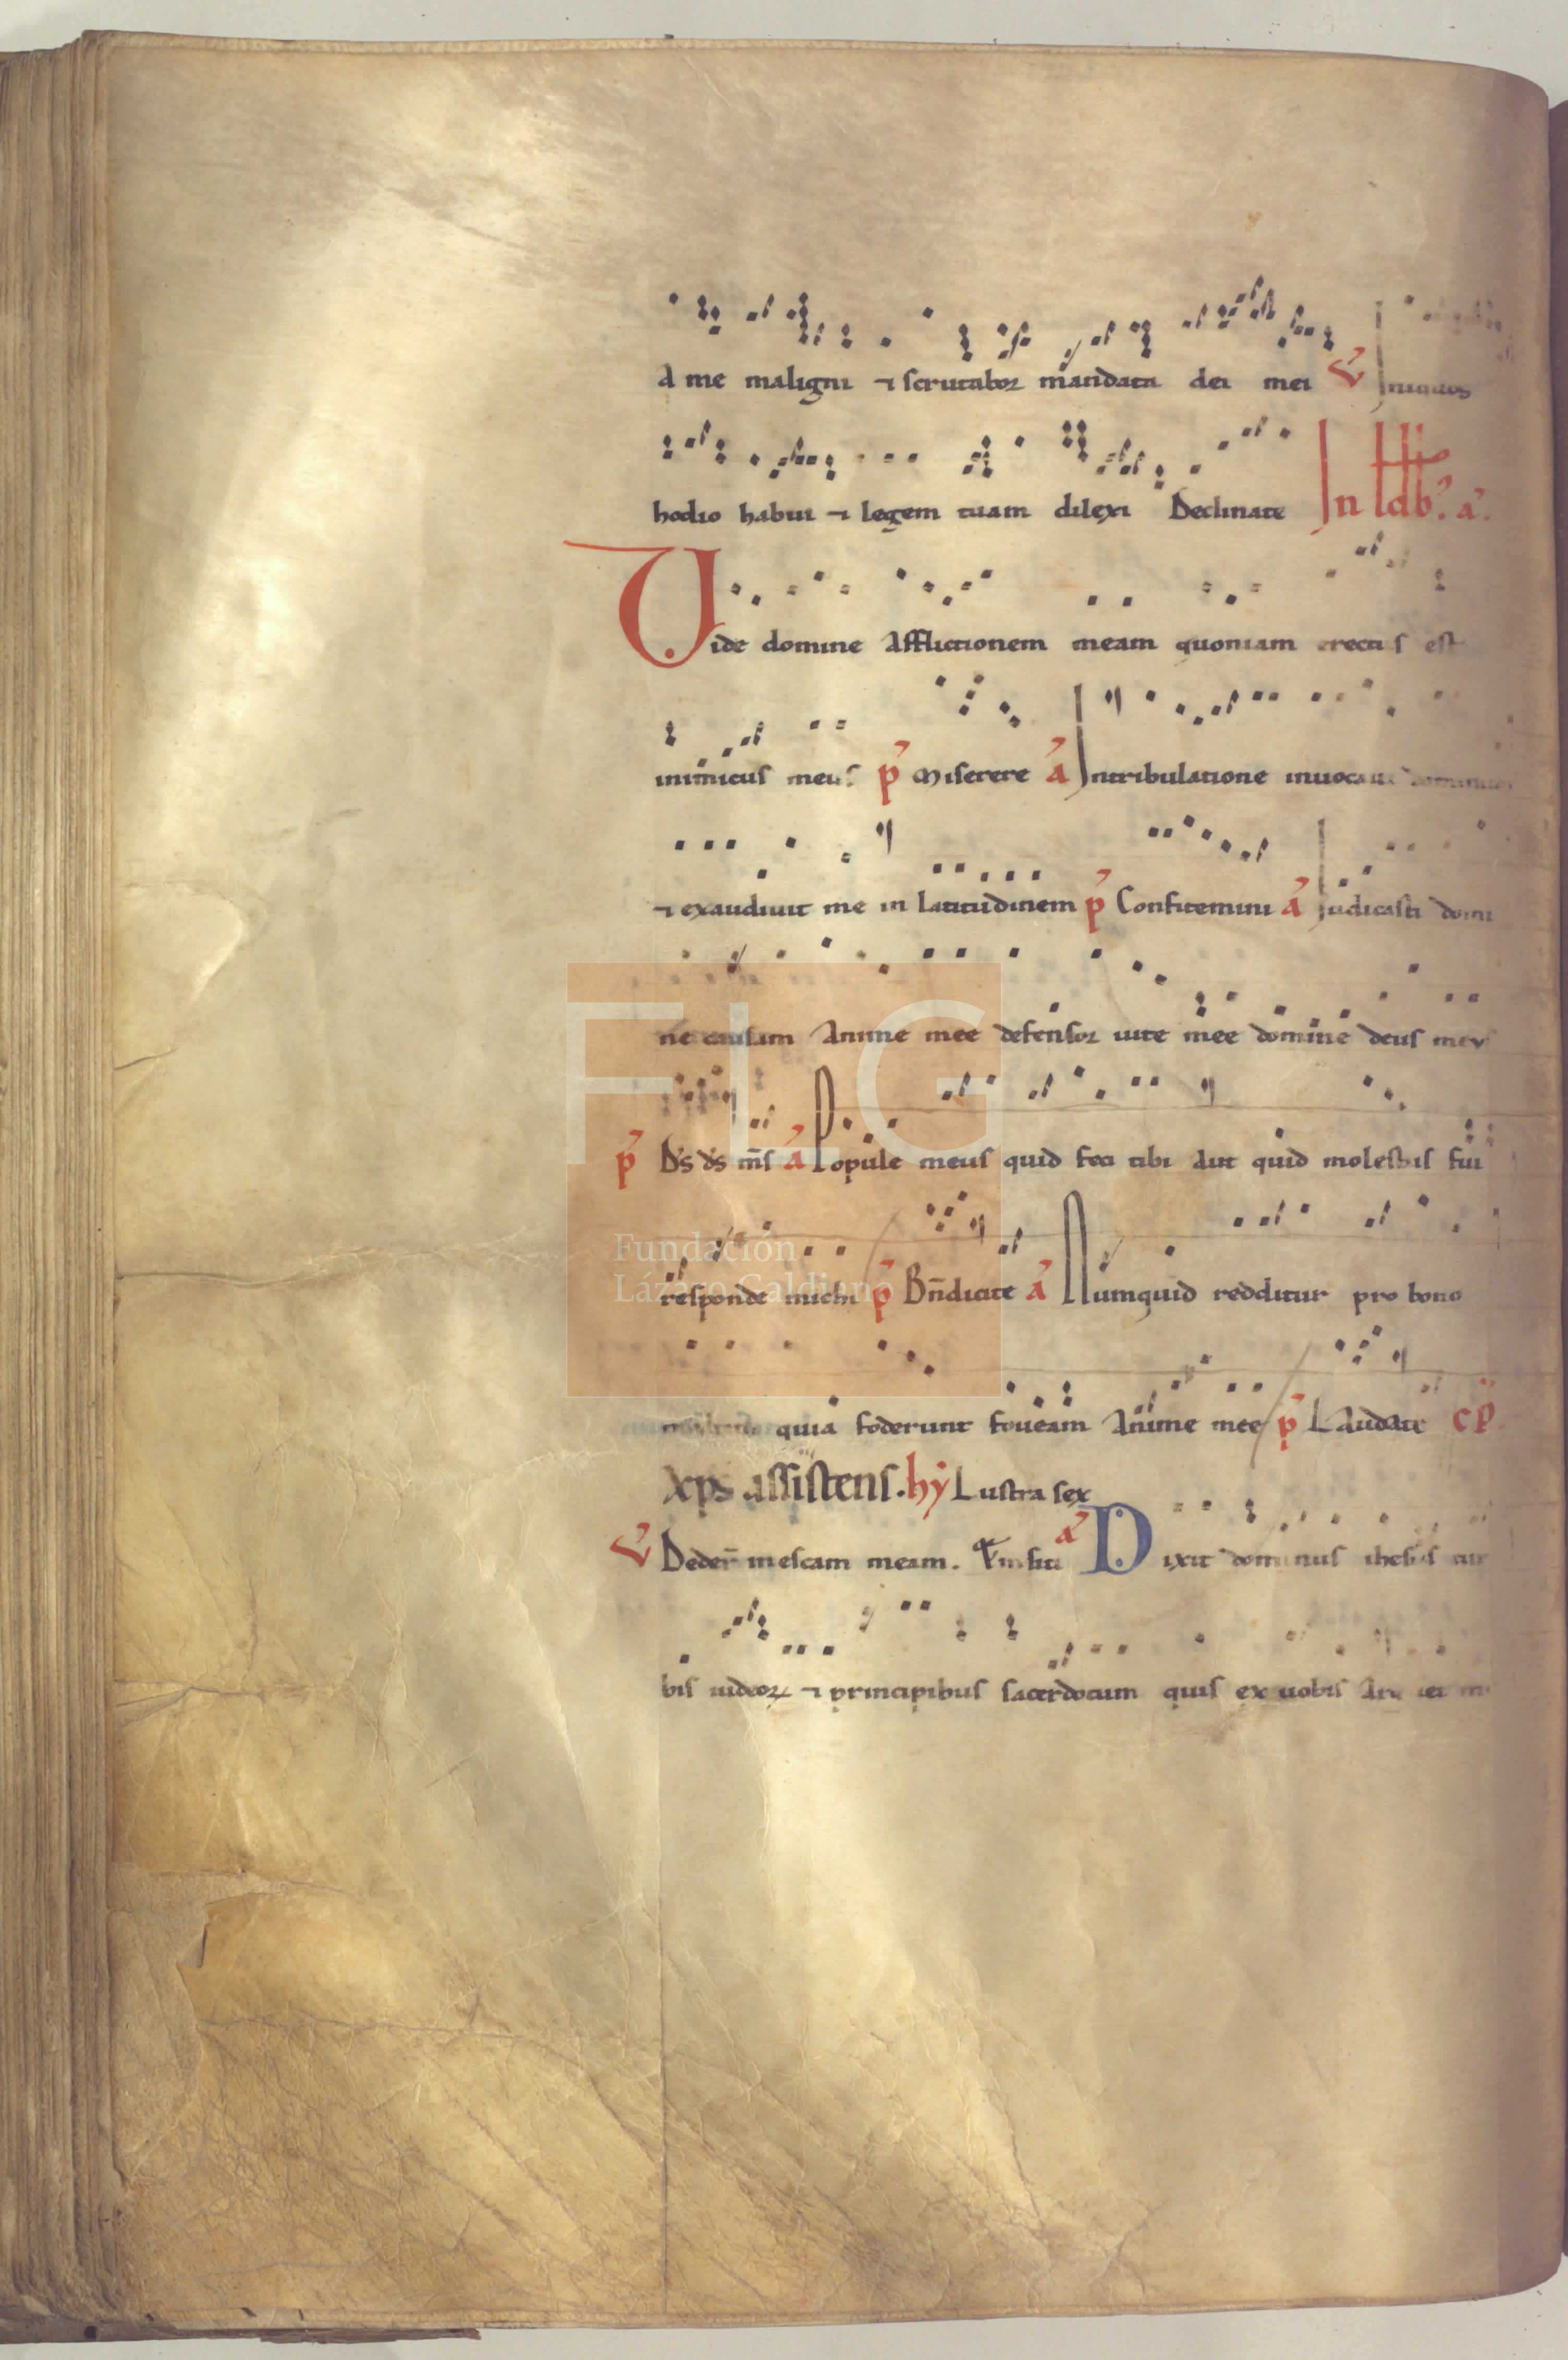 a me maligni ⁊ scrutabor mandata dei mei ℣ Iniquos
hodio habui ⁊ legem tuam dilexi Declinate In ldb᾽. a᾽.
Uide domine afflictionem meam quoniam erectus est
inimicus meus p᾽ Miserere a᾽ Intribulatione inuocaui dominum
⁊ exaudiuit me in latitudinem p᾽ Confitemini a᾽ Iudicasti domi
ne causam anime mee defensor uite mee domine deus meus
p᾽ Ds ds m̄s a᾽ Popule meus quid feci tibi aut quid molestus fui
responde michi p᾽ Bn̄dicite a᾽ Numquid redditur pro bono
quia foderunt foueam anime mee p᾽ Laudate cp̄.
Xps assistens. hy̅ Lustra sex
℣ Deder̄ inescam meam. a᾽ Dixit dominus ihesus tur
bis iudeoꝝ ⁊ principibus sacerdotum quis ex uobis
FLG
Fundación
Lázaro Galdiano